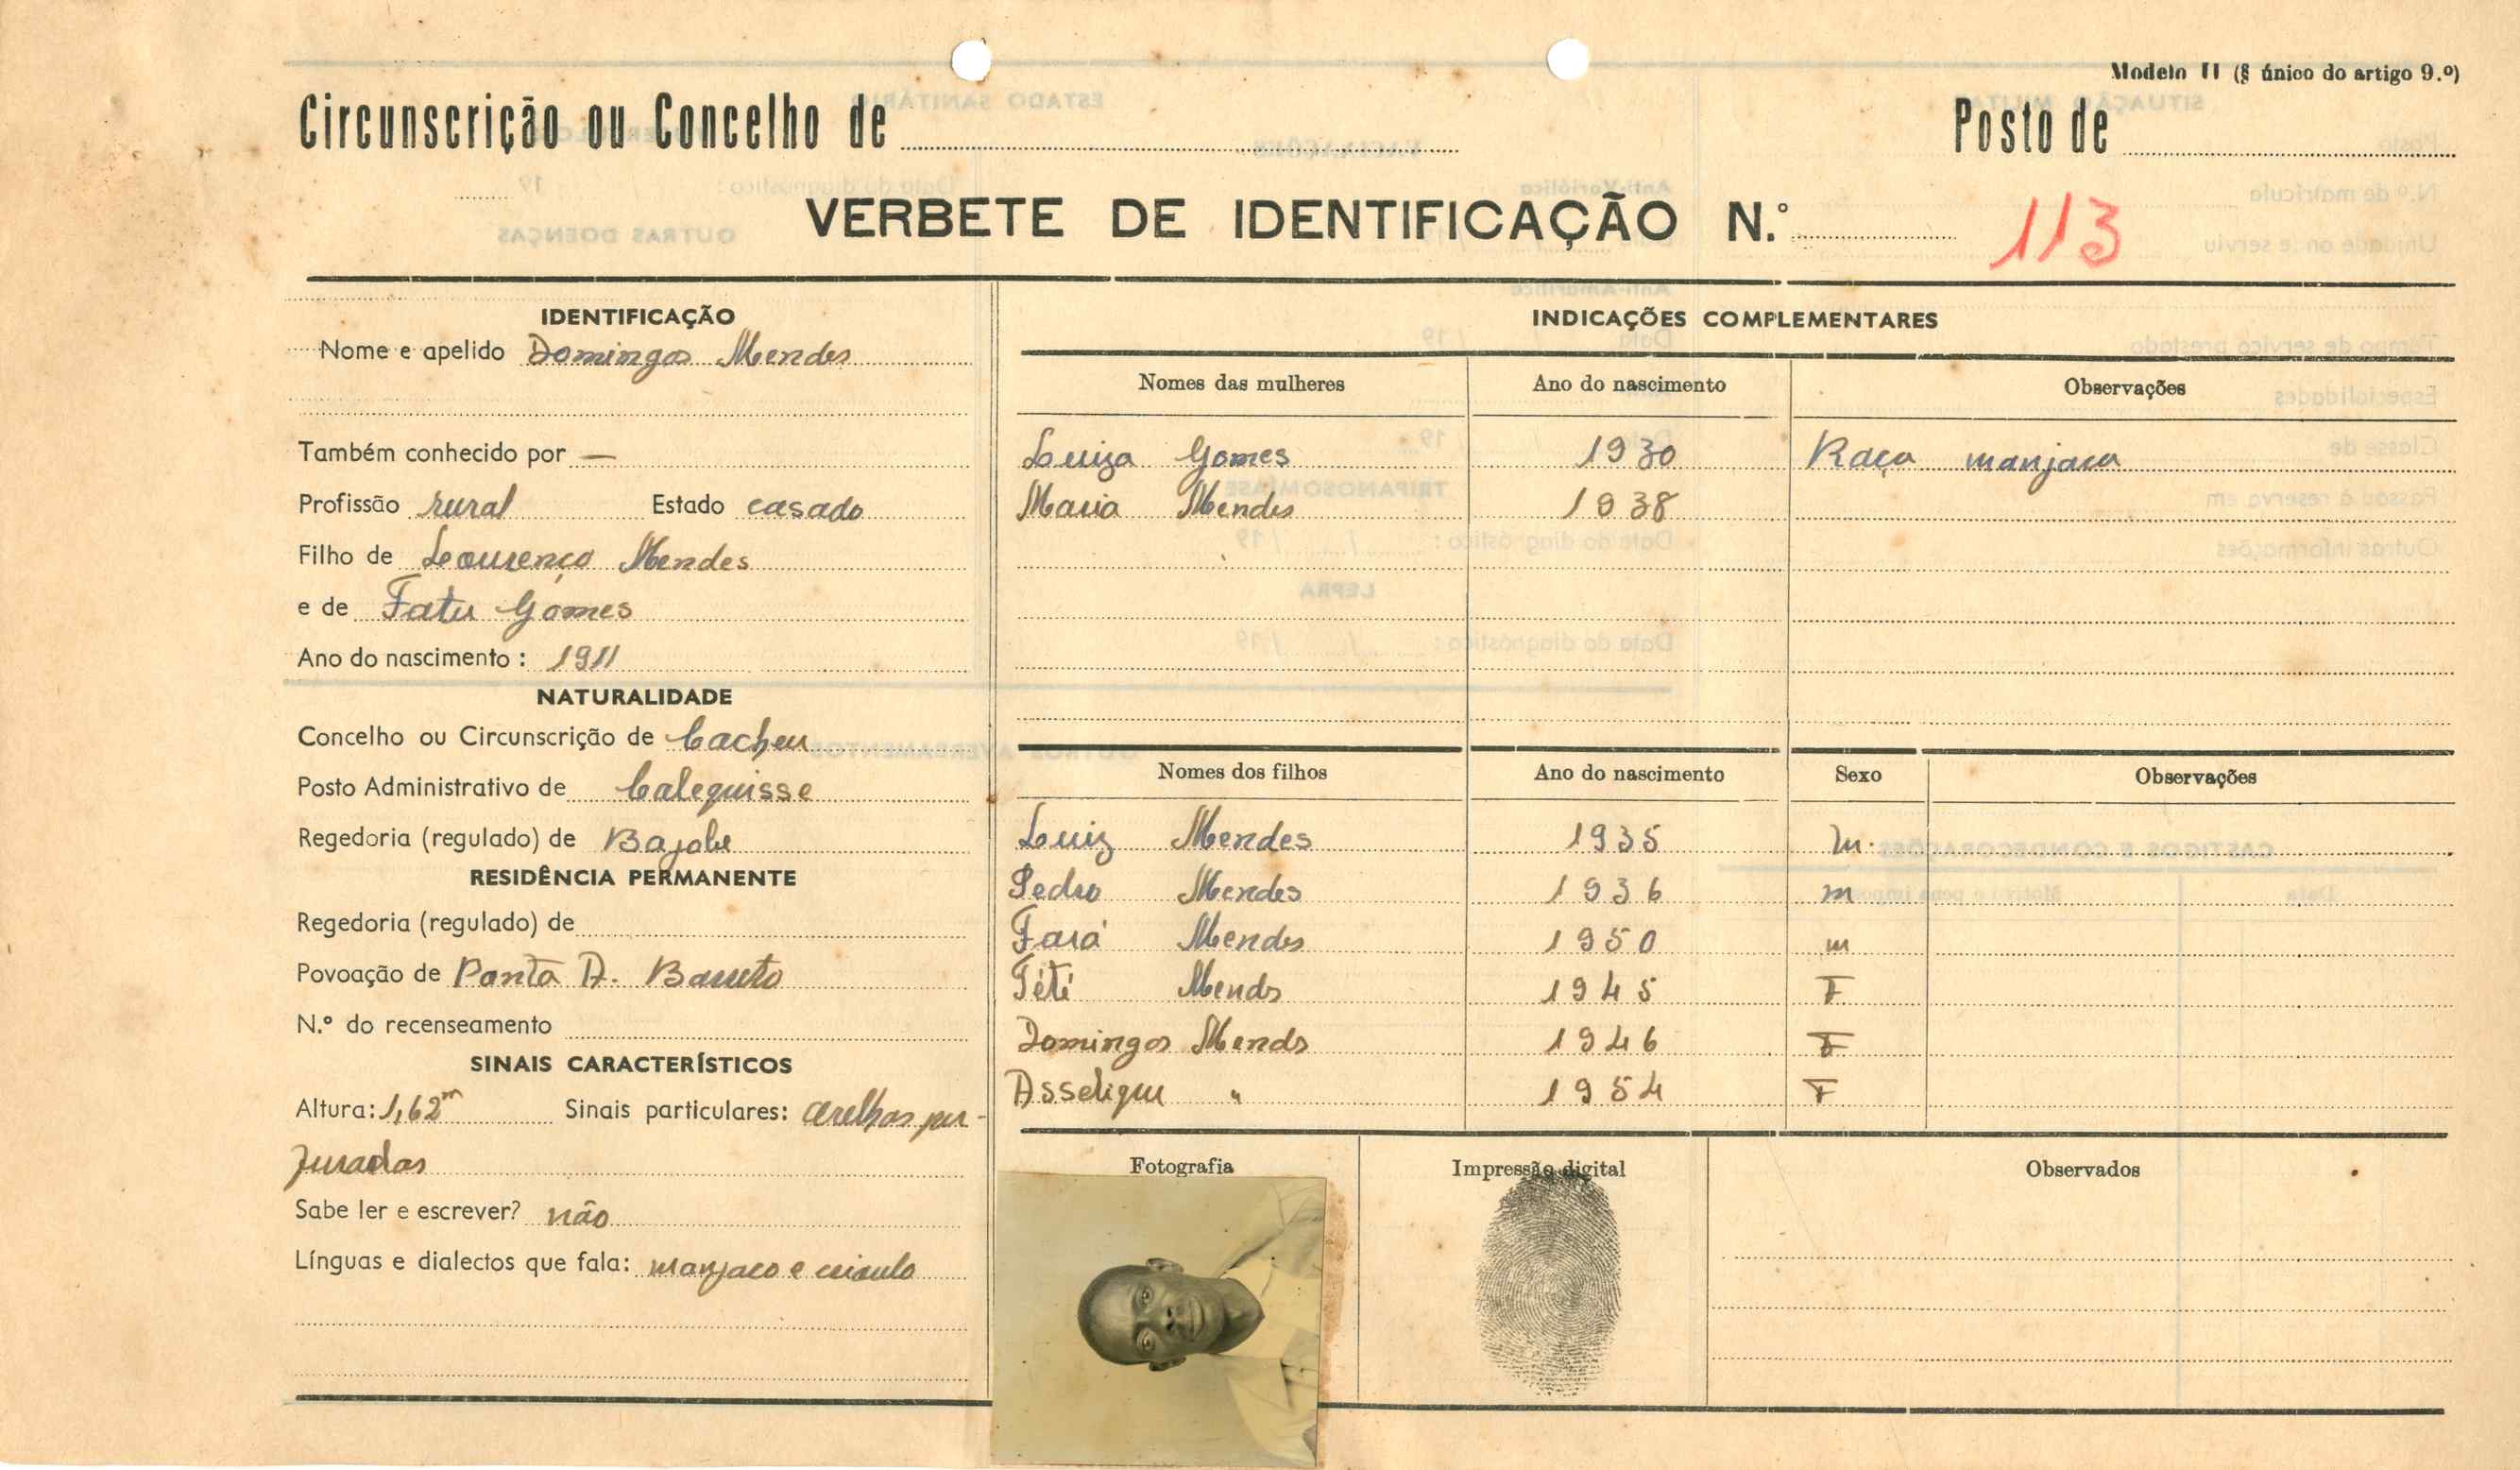 Modelo II (§ único do artigo 9.º)
Circunscrição ou Concelho de
Posto de
VERBETE DE IDENTIFICAÇÃO N.º 113
IDENTIFICAÇÃO
Nome e apelido Domingos Mendes
Também conhecido por —
Profissão rural Estado casado
Filho de Lourenço Mendes
e de Fatu Gomes
Ano do nascimento: 1911
NATURALIDADE
Concelho ou Circunscrição de Cacheu
Posto Administrativo de Calequisse
Regedoria (regulado) de Bajobe
RESIDÊNCIA PERMANENTE
Regedoria (regulado) de
Povoação de Ponta A. Barreto
N.º do recenseamento
SINAIS CARACTERÍSTICOS
Altura: 1,62m Sinais particulares: orelhas per-
furadas
Sabe ler e escrever? não
Línguas e dialectos que fala: manjaco e crioulo
INDICAÇÕES COMPLEMENTARES
Nomes das mulheres Ano do nascimento Observações
Luiza Gomes 1930 Raça manjaca
Maria Mendes 1938
Nomes dos filhos Ano do nascimento Sexo Observações
Luiz Mendes 1935 m.
Pedro Mendes 1936 m
Fará Mendes 1950 m
Tété Mends 1945 F
Domingos Mends 1946 F
Asselique " 1954 F
Fotografia Impressão digital Observados